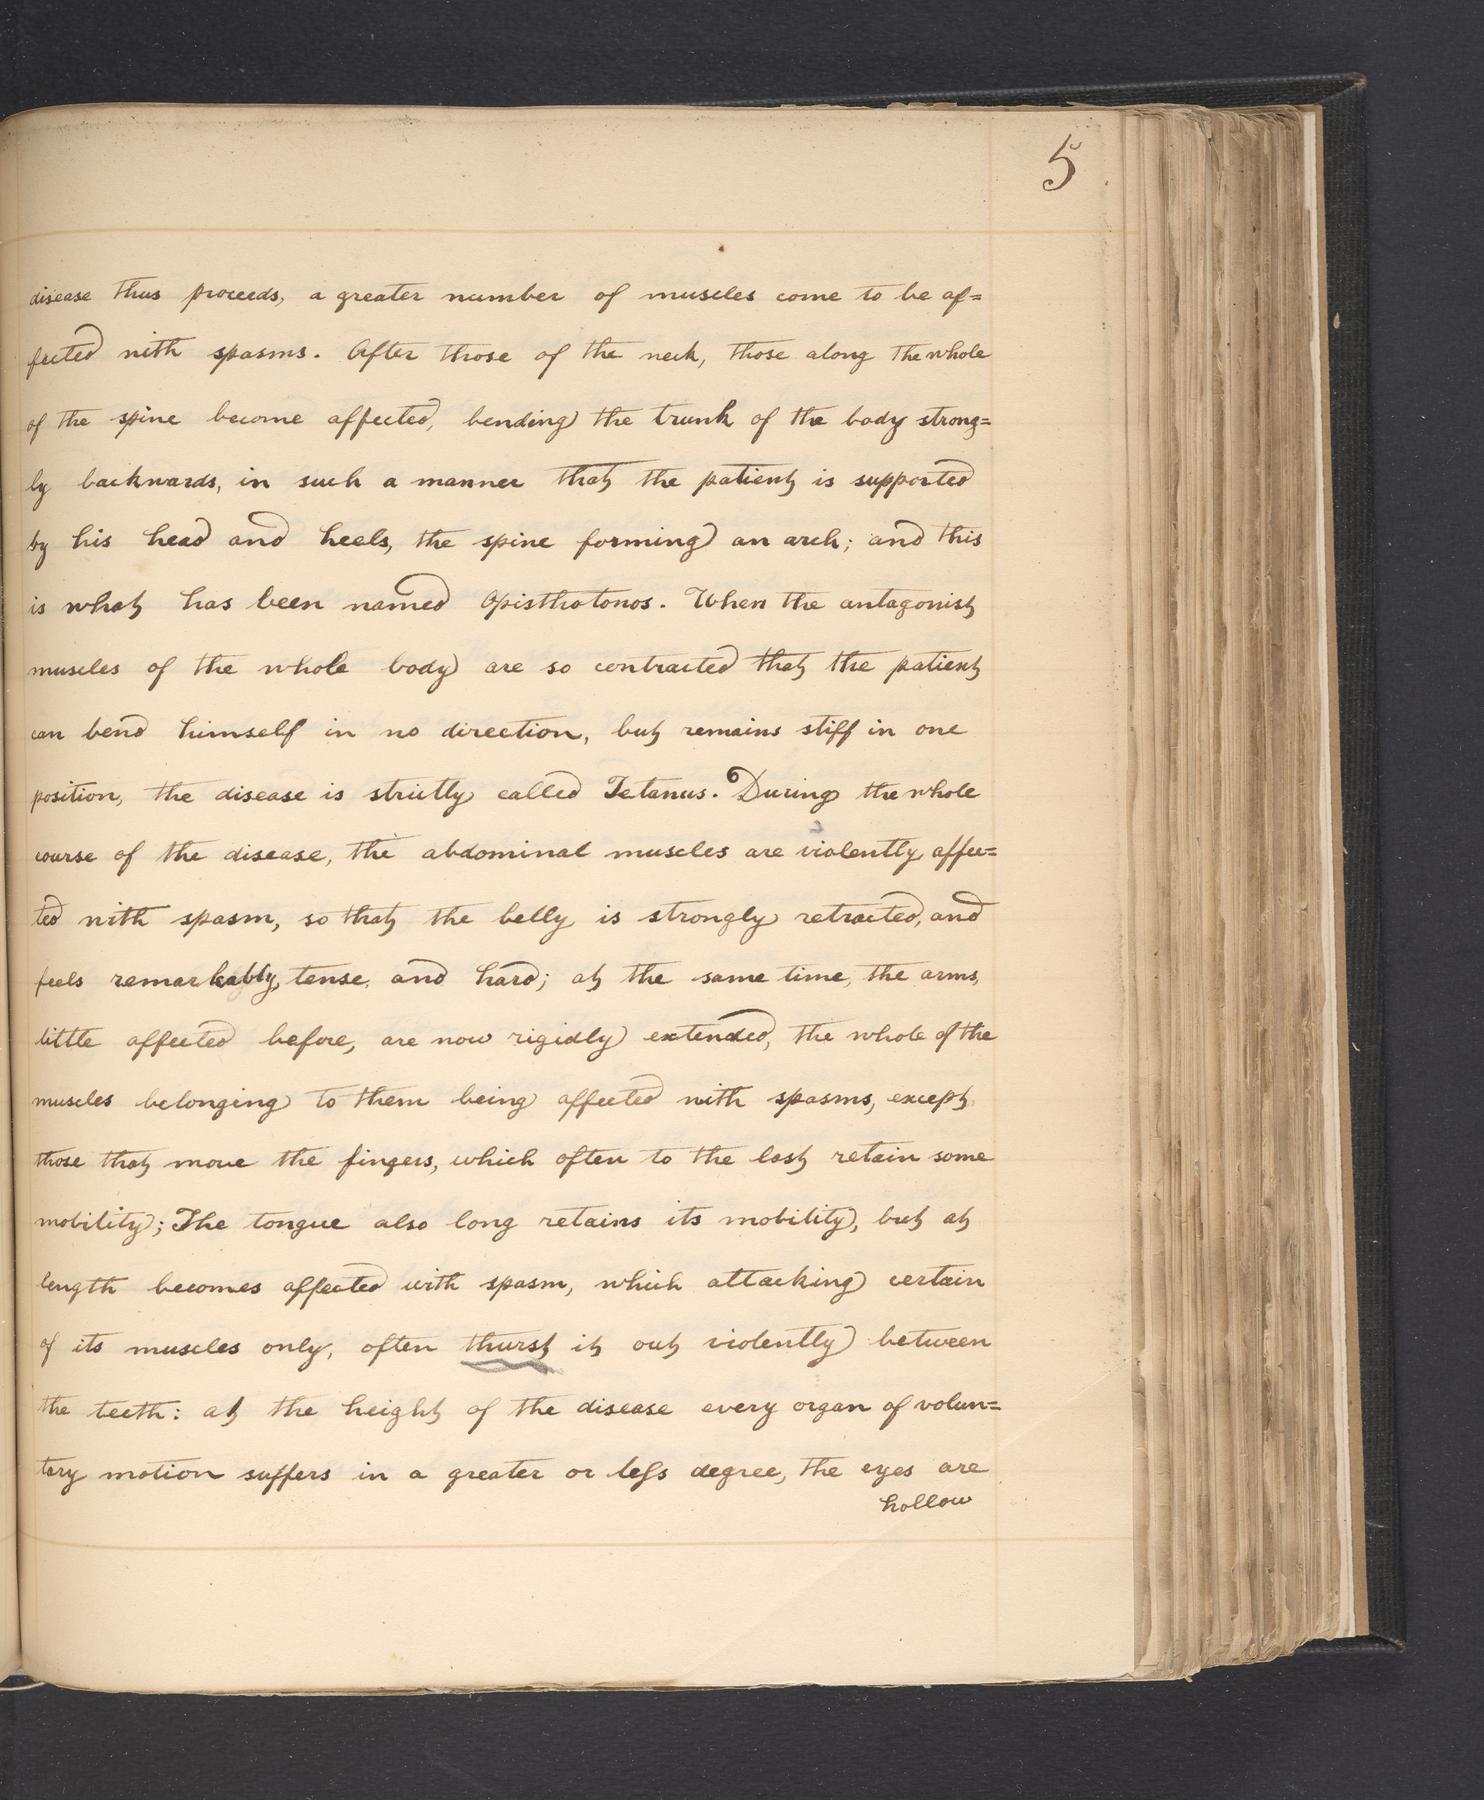 5
disease thus proceeds, a greater number of muscles come to be af=
fected with spasms. After those of the neck, those along the whole
of the spine become affected, bending the trunk of the body strong=
ly backwards, in such a manner that the patient is supported
by his head and heels, the spine forming an arch; and this
is what has been named Opisthotonos. When the antagonist
muscles of the whole body are so contracted that the patient
can bend himself in no direction, but remains stiff in one
position, the disease is strictly called Tetanus. During the whole
course of the disease, the abdominal muscles are violently affec=
ted with spasm, so that the belly is strongly retracted, and
feels remarkably, tense, and hard; at the same time, the arms,
little affected before, are now rigidly extended, the whole of the
muscles belonging to them being affected with spasms, except
those that move the fingers, which often to the last retain some
mobility; The tongue also long retains its mobility, but at
length becomes affected with spasm, which attacking certain
of its muscles only, often thurst it out violently between
the teeth: at the height of the disease every organ of volun=
tary motion suffers in a greater or less degree, the eyes are
hollow